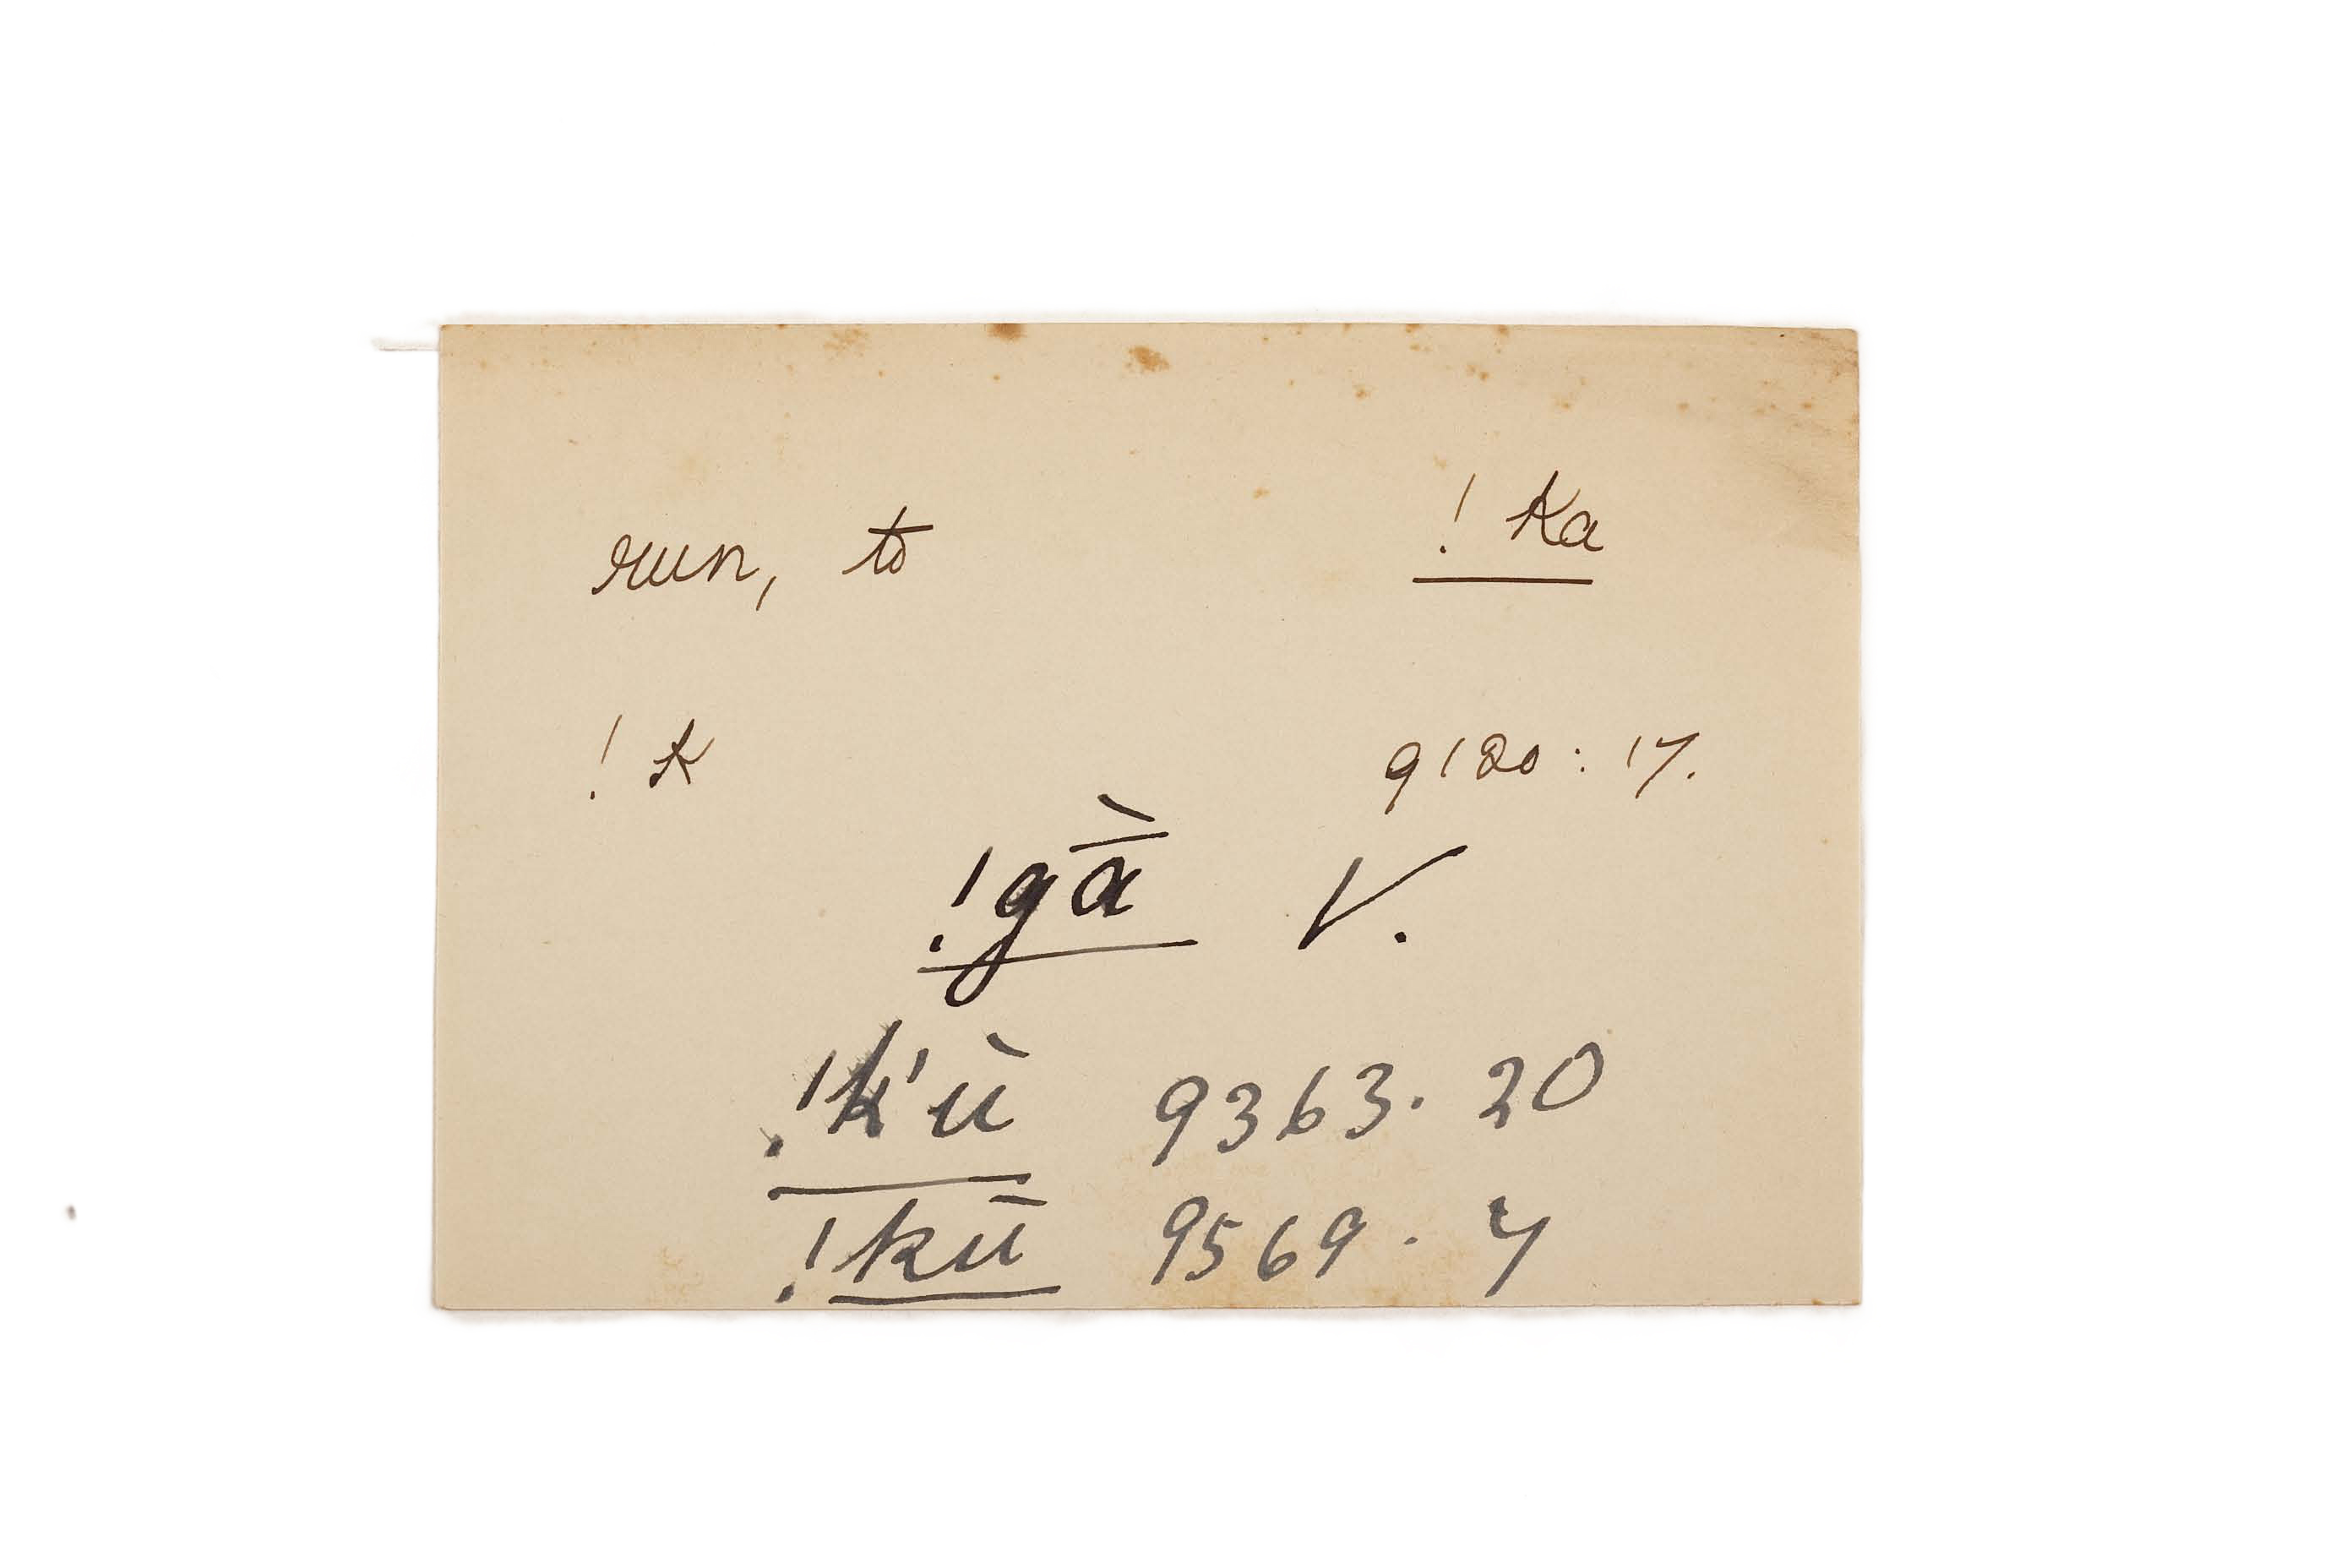 run, to ! ka
! k 9120 : 17.
!gā̀ V.
!k'ù 9363. 20
!kū 9569. 7